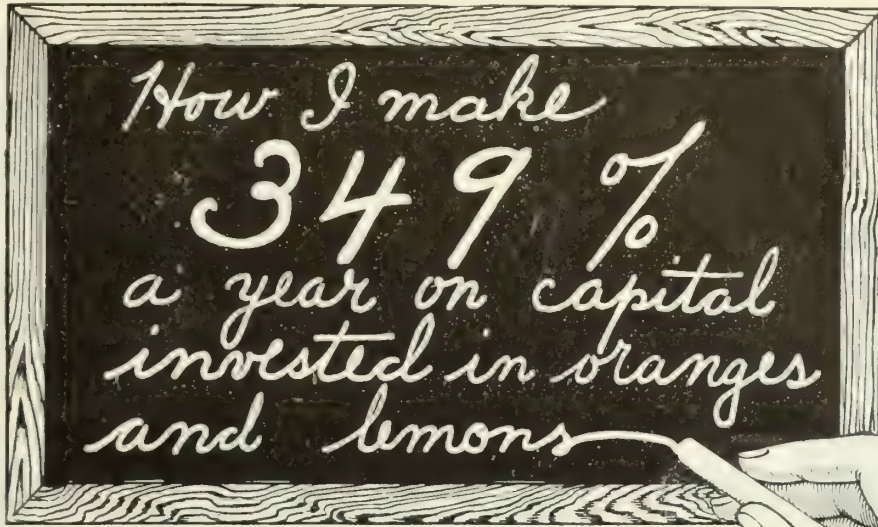 How I make
349%
a year on capital
invested in oranges
and lemons